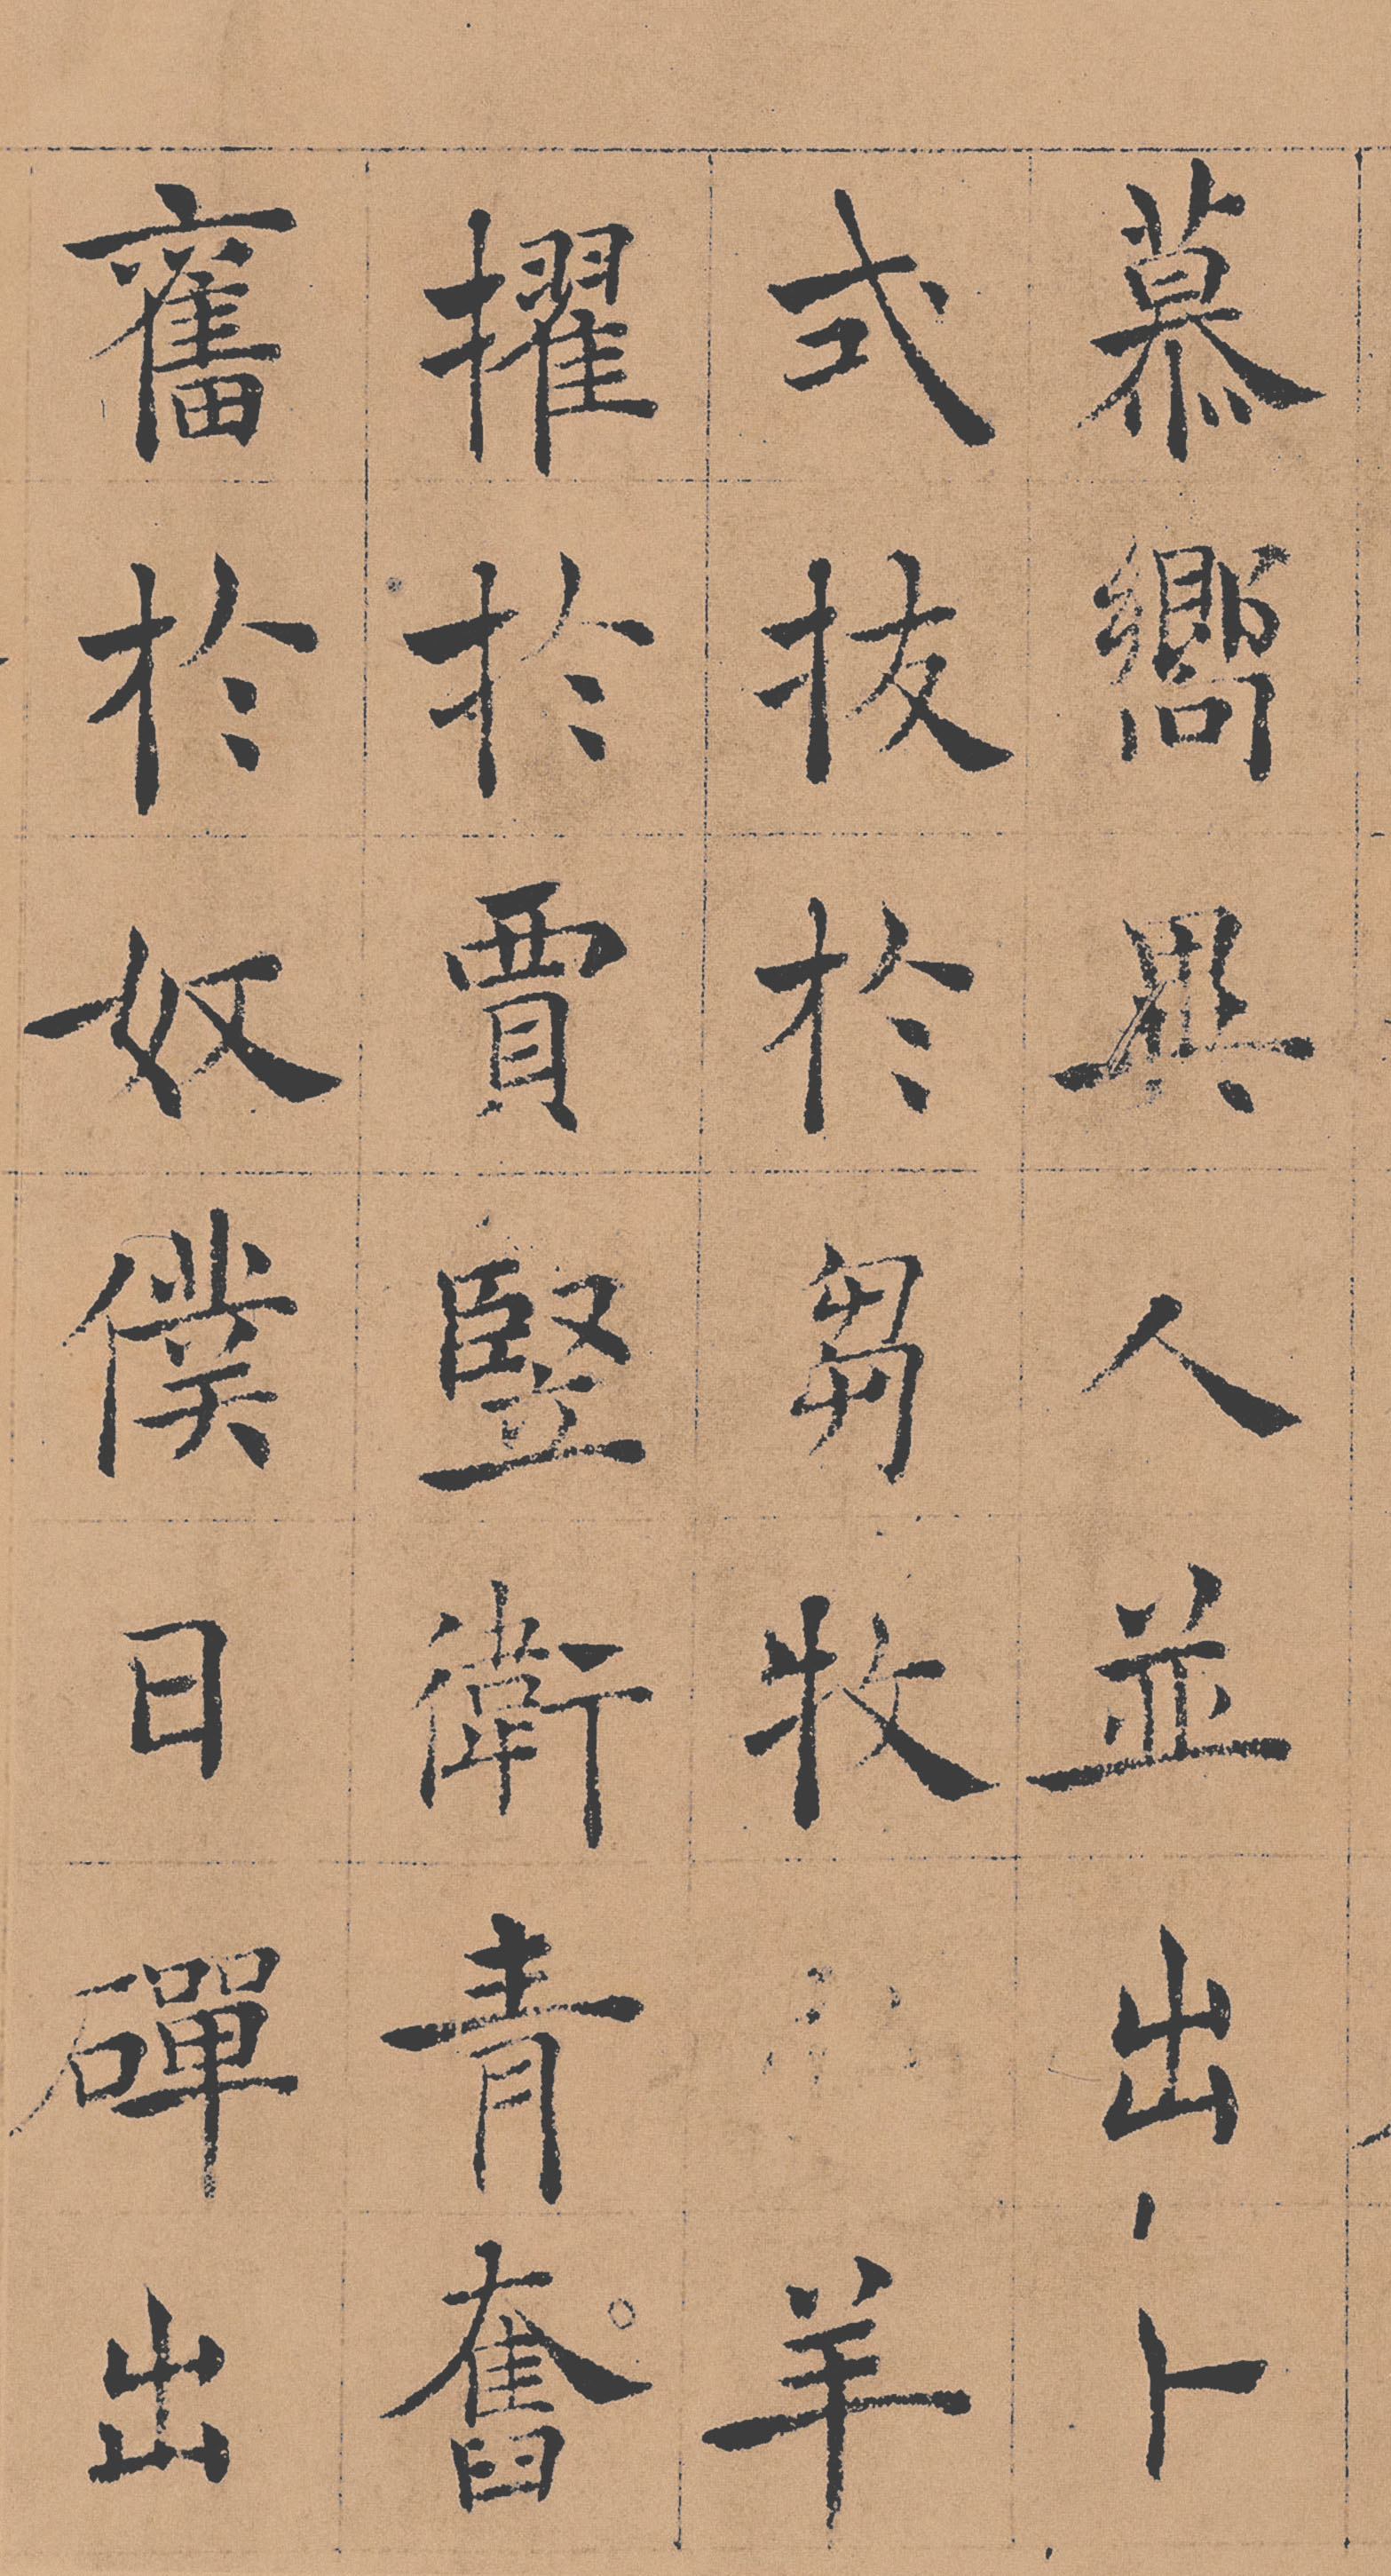 慕嚮異人並出卜
式拔於芻牧羊
擢於賈竪衛青奮
奮於奴僕日磾出